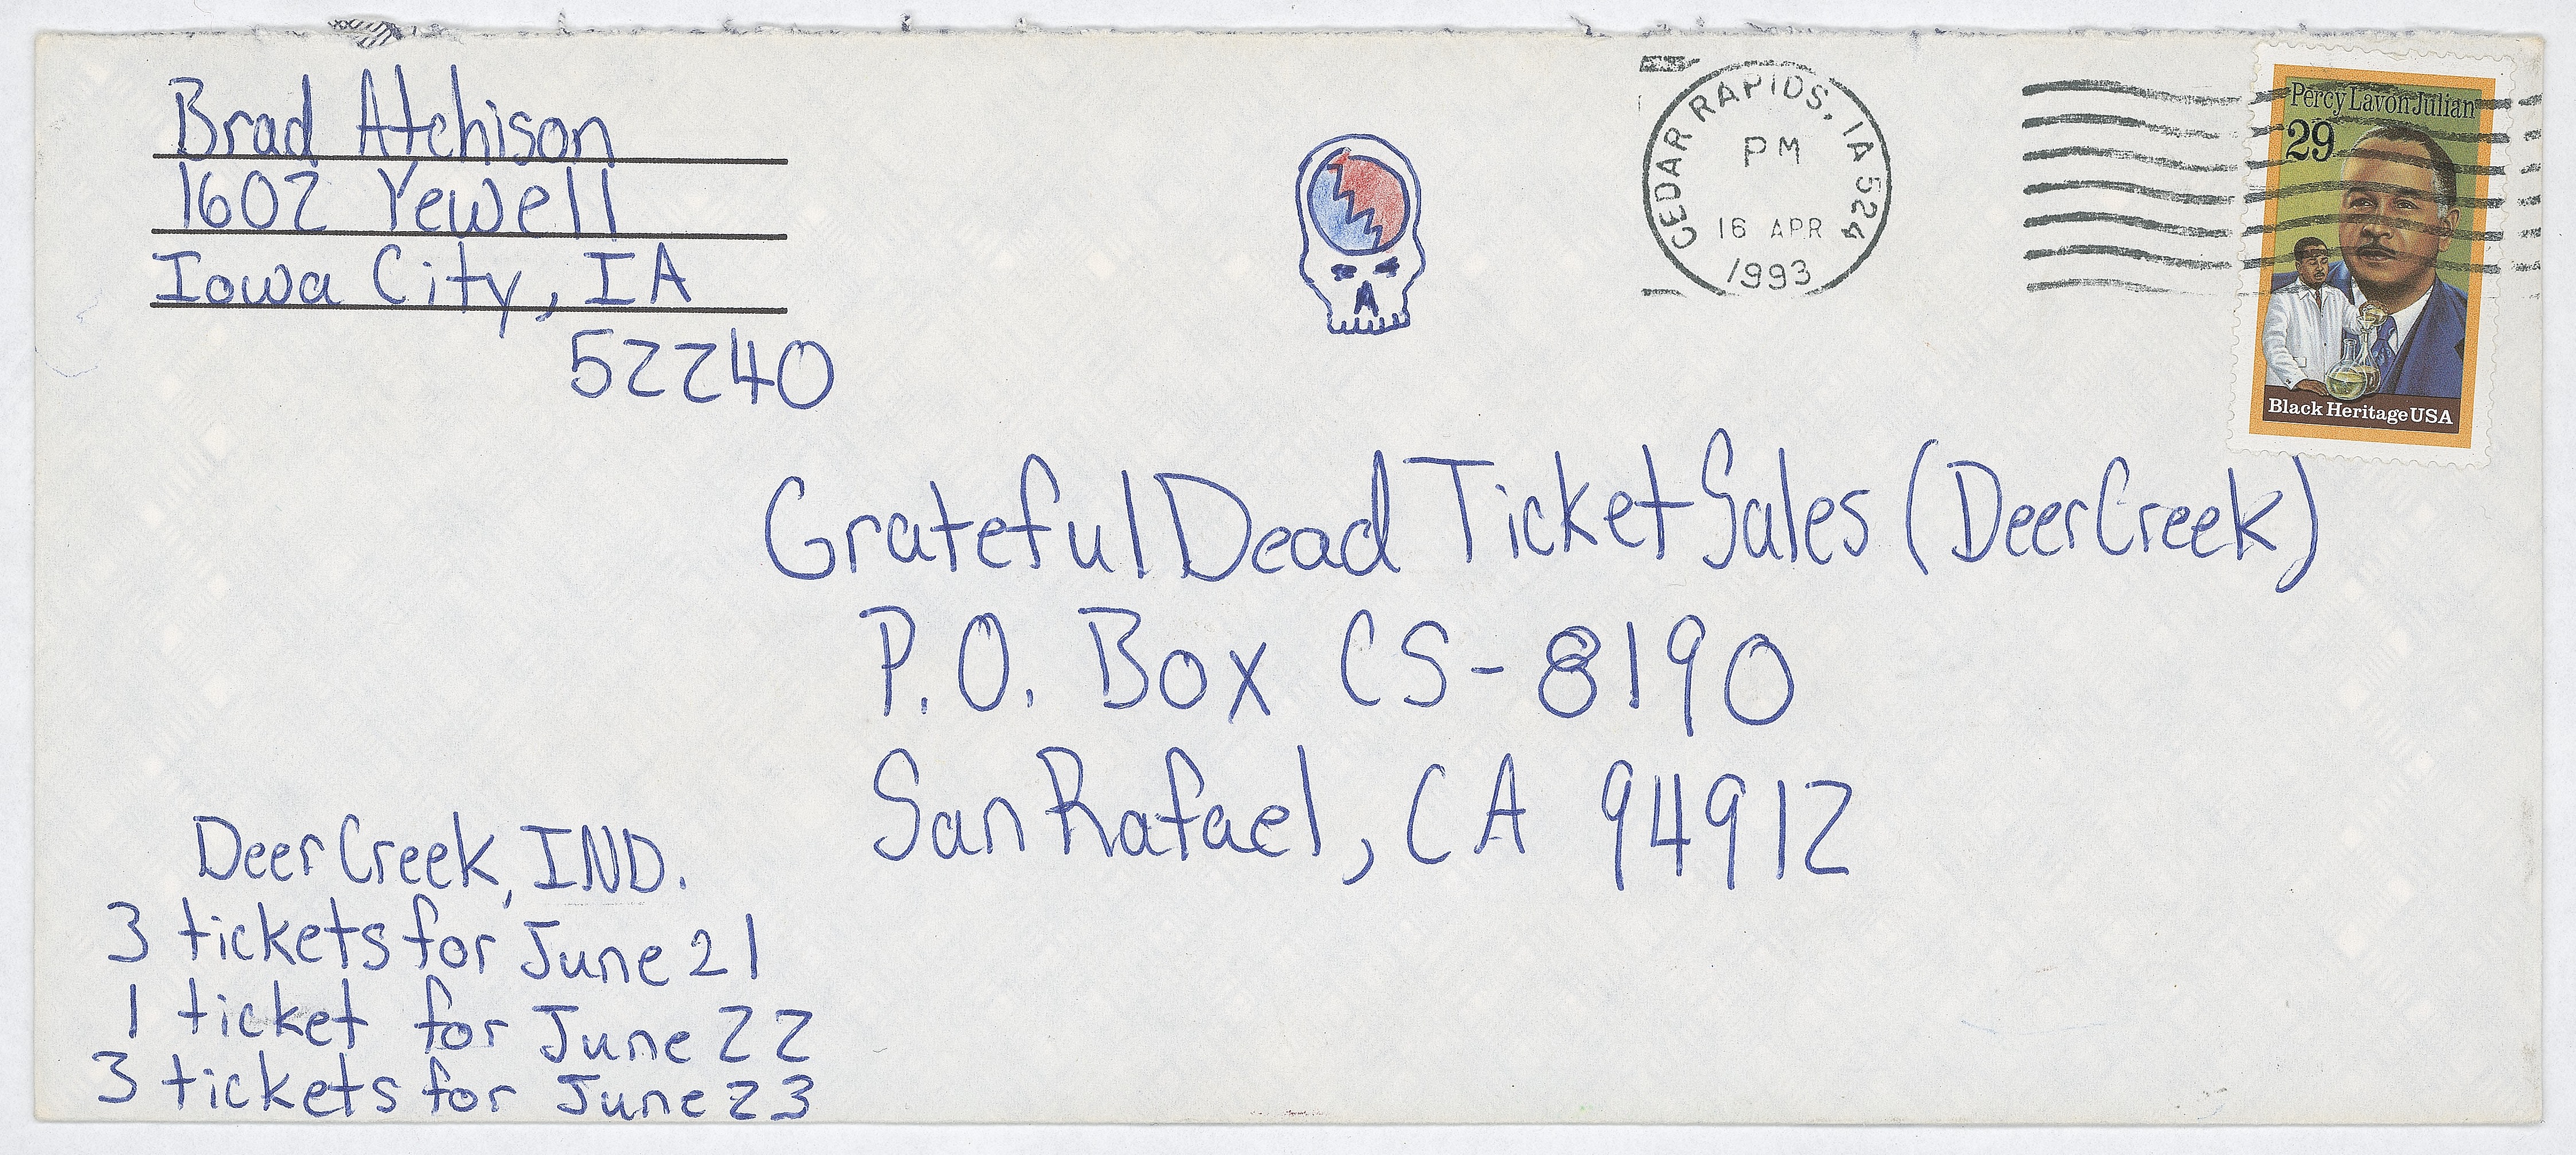 Brad Atchison
1602 Yewell
Iowa City, IA
52240
CEDAR RAPIDS, IA 524
PM
16 APR
1993
Percy Lavon Julian
29
Black Heritage USA
Grateful Dead Ticket Sales (Deer Creek)
P.O. Box CS-8190
San Rafael, CA 94912
Deer Creek, IND.
3 tickets for June 21
1 ticket for June 22
3 tickets for June 23